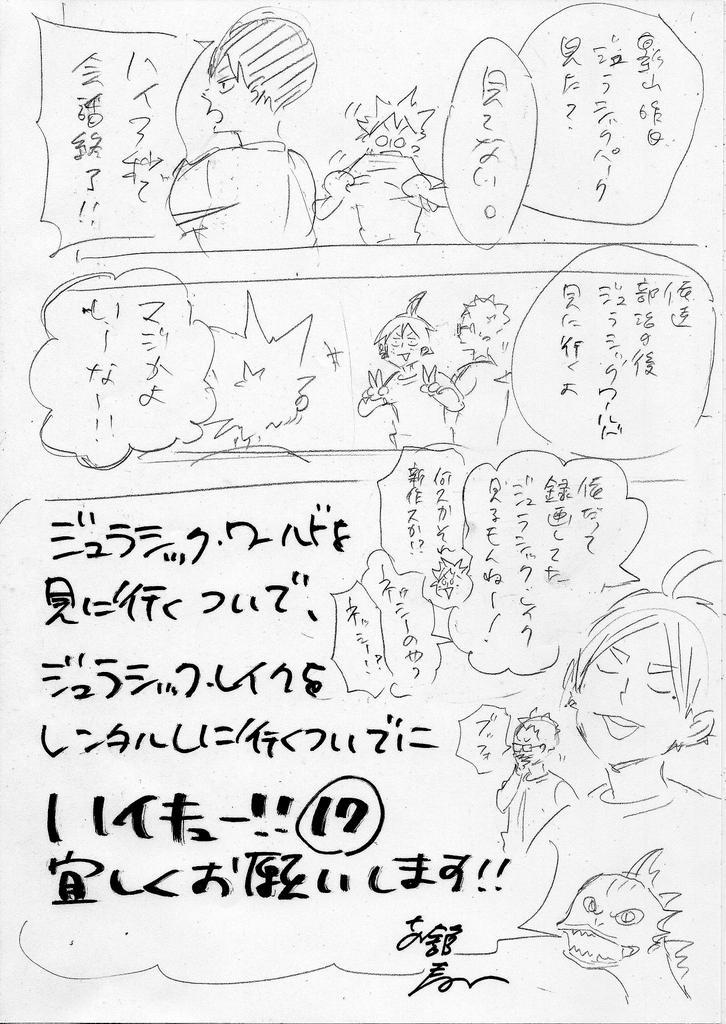 影山昨日
ジュラシックパーク
見た?
見てない。
ハイアボて
会話終了!!
俺達
部活の後
ジュラシックワールド
見に行くよ
マジかよ
いーなー!!
俺だって
録画してた
ジュラシック・レイク
見るもんねー!
何スかそれ
新作スか!?
ネッシーのやつ
ネッシー!?
ブッフォ
ジュラシック・ワールドを
見に行くついで、
ジュラシック・レイクを
レンタルしに行くついでに
ハイキュー!!⑰
宜しくお願いします!!
古舘
春一